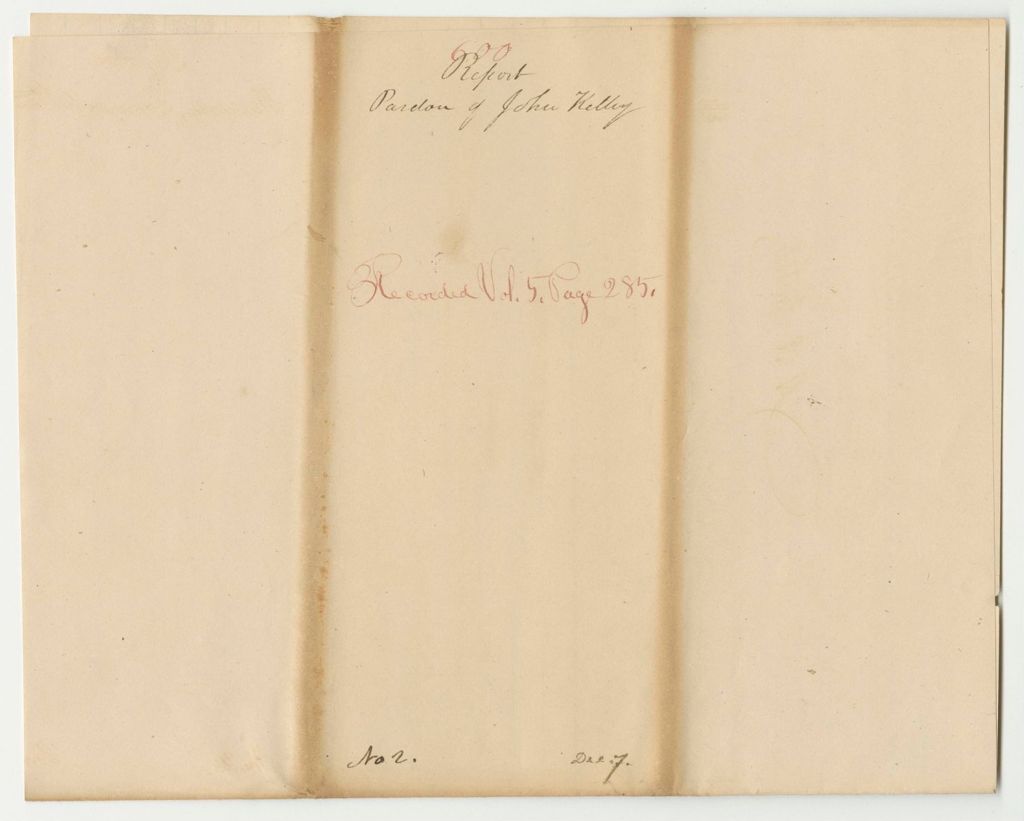 600
Report
Pardon of John Kelley
Recorded Vol. 5. Page 285.
No 2.
Dec. 7.